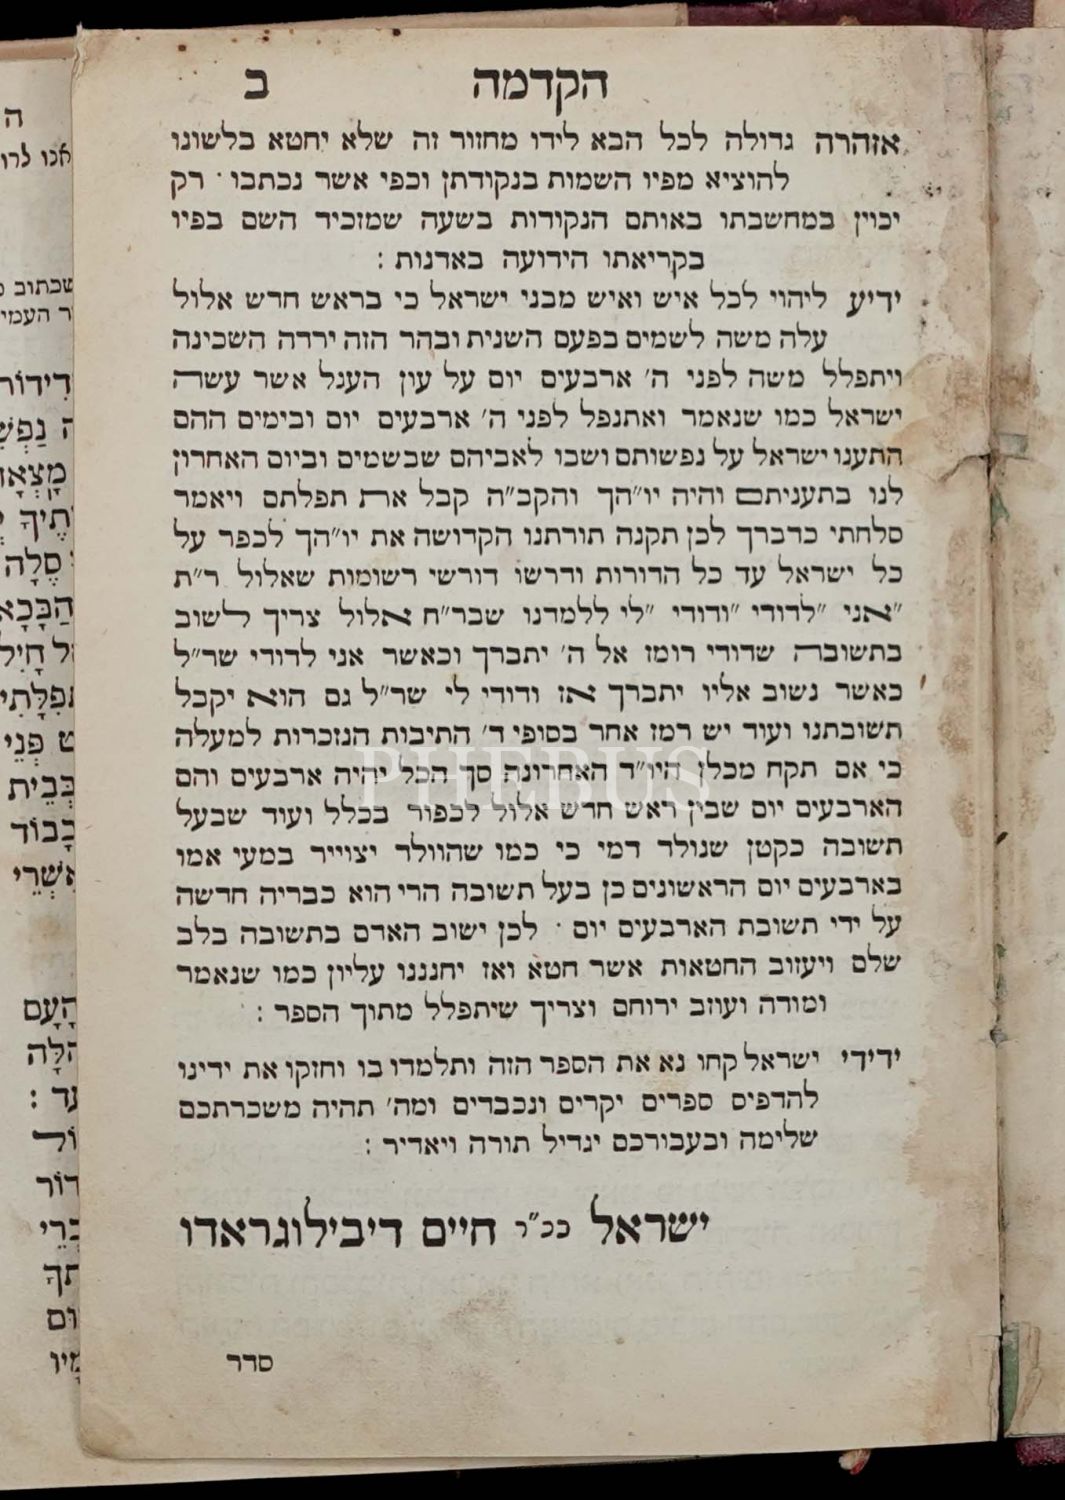 הקדמה ב
אזהרה גדולה לכל הבא לידו מחזור זה שלא יחטא בלשונו
להוציא מפיו השמות בנקודתן וכפי אשר נכתבו · רק
יכוין במחשבתו באותם הנקודות בשעה שמזכיר השם בפיו
בקריאתו הידועה באדנות :
ידיע ליהוי לכל איש ואיש מבני ישראל כי בראש חדש אלול
עלה משה לשמים בפעם השנית ובהר הזה ירדה השכינה
ויתפלל משה לפני ה' ארבעים יום על עון העגל אשר עשה
ישראל כמו שנאמר ואתנפל לפני ה' ארבעים יום ובימים ההם
התענו ישראל על נפשותם ושבו לאביהם שבשמים וביום האחרון
לנו בתעניתם והיה יו"הך והקב"ה קבל את תפלתם ויאמר
סלחתי כדברך לכן תקנה תורתנו הקדושה את יו"הך לכפר על
כל ישראל עד כל הדורות ודרשו דורשי רשומות שאלול ר"ת
"אני "לדודי "ודודי "לי ללמדנו שבר"ח אלול צריך לשוב
בתשובה שדודי רומז אל ה' יתברך וכאשר אני לדודי שר"ל
כאשר נשוב אליו יתברך אז ודודי לי שר"ל גם הוא יקבל
תשובתנו ועוד יש רמז אחר בסופי ד' התיבות הנזכרות למעלה
כי אם תקח מכלן היו"ד האחרונה סך הכל יהיה ארבעים והם
הארבעים יום שבין ראש חדש אלול לכפור בכלל ועוד שבעל
תשובה כקטן שנולד דמי כי כמו שהוולד יצוייר במעי אמו
בארבעים יום הראשונים כן בעל תשובה הרי הוא כבריה חדשה
על ידי תשובת הארבעים יום · לכן ישוב האדם בתשובה בלב
שלם ויעזוב החטאות אשר חטא ואז יחנננו עליון כמו שנאמר
ומודה ועוזב ירוחם וצריך שיתפלל מתוך הספר :
ידידי ישראל קחו נא את הספר הזה ותלמדו בו וחזקו את ידינו
להדפיס ספרים יקרים ונכבדים ומה' תהיה משכרתכם
שלימה ובעבורכם יגדיל תורה ויאדיר :
ישראל ככ"ר חיים דיבילוגראדו
סדר
PHEBUS